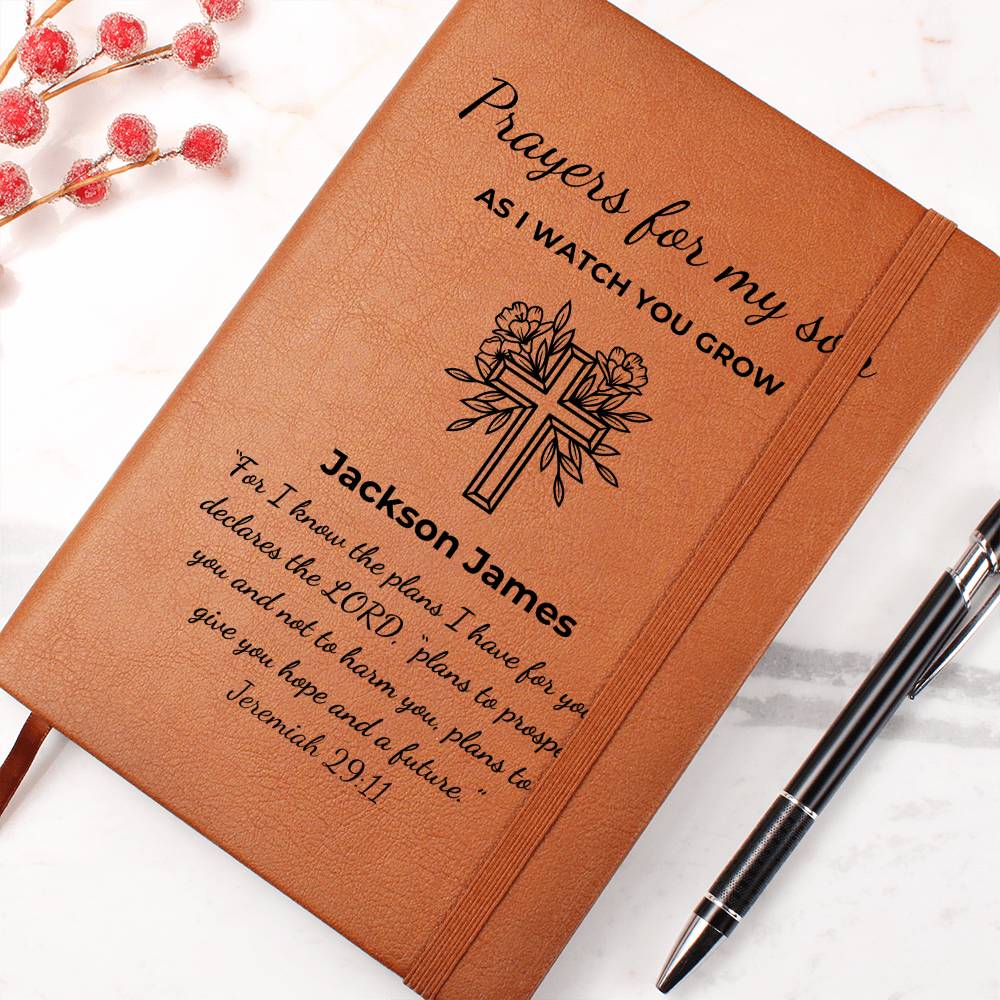 Prayers for my son
AS I WATCH YOU GROW
Jackson James
"For I know the plans I have for you
declares the LORD, "plans to prosper
you and not to harm you, plans to
give you hope and a future."
Jeremiah 29:11